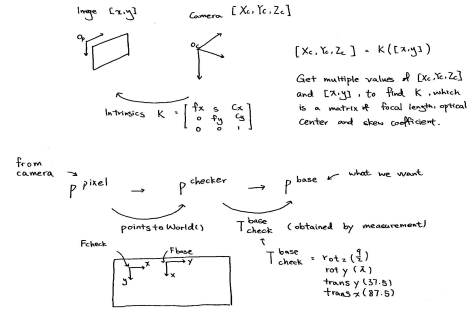 Image [x,y]
Camera [Xc, Yc, Zc]
Oc
[Xc, Yc, Zc] = K([x,y])
Get multiple values of [Xc, Yc, Zc]
and [x,y], to find K, which
is a matrix of focal length, optical
Center and skew coefficient.
Intrinsics K = [ fx s Cx
0 fy Cy
0 0 1 ]
from
camera
P pixel → P checker → P base
what we want
pointsToWorld()
T base check (obtained by measurement)
Fcheck
Fbase
x
y
y
x
T base check = rot z
rot y
trans y (37.5)
trans x (87.5)